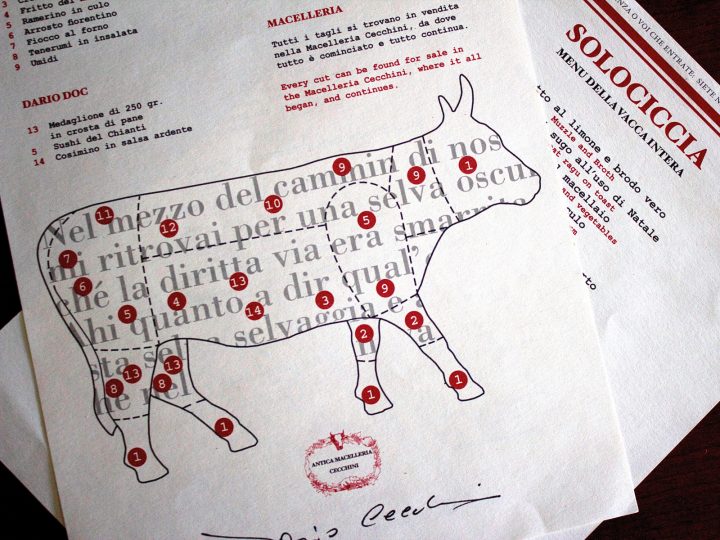 Fritto del
4 Ramerino in culo
5 Arrosto fiorentino
6 Fiocco al forno
7 Tenerumi in insalata
8 Umidi
9
DARIO DOC
13 Medaglione di 250 gr.
in crosta di pane
5 Sushi del Chianti
14 Cosimino in salsa ardente
MACELLERIA
Tutti i tagli si trovano in vendita
nella Macelleria Cecchini, da dove
tutto è cominciato e tutto continua.
Every cut can be found for sale in
the Macelleria Cecchini, where it all
began, and continues.
Nel mezzo del cammin di nos
mi ritrovai per una selva oscur
ché la diritta via era smarrita
Ahi quanto a dir qual'
sta selva selvaggia e a
che nel
11
12
10
9
9
1
7
6
5
4
13
14
3
5
9
2
2
8
13
8
13
1
1
1
1
ANTICA MACELLERIA
CECCHINI
O VOI CHE ENTRATE, SIETE
SOLOCICCIA
MENU DELLA VACCA INTERA
al limone e brodo vero
Muzzle and Broth
sugo all'uso di Natale
ragu on toast
macellaio
and vegetables